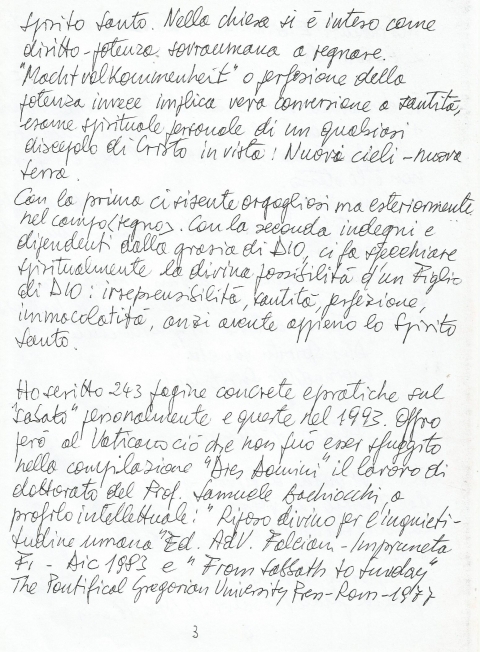 Spirito Santo. Nella chiesa si è inteso come
diritto-potenza sovraumana a regnare.
"Machtvolkommenheit" o perfezione della
potenza invece implica vera conversione a santità,
esame spirituale personale di un qualsiasi
discepolo di Cristo in vista: Nuovi cieli - nuova
terra.
Con la prima ci si sente orgogliosi ma esteriormente
nel campo/regno. Con la seconda indegni e
dipendenti dalla grazia di DIO, ci fa specchiare
spiritualmente la divina possibilità d'un Figlio
di DIO: irreprensibilità, santità, perfezione,
immacolatità, anzi avente appieno lo Spirito
Santo.
Ho scritto 243 pagine concrete e pratiche sul
"sabato" personalmente e queste nel 1993. Offro
però al Vaticano ciò che non può esser sfuggito
nella compilazione "Dies Domini" il lavoro di
dottorato del Prof. Samuele Bachiocchi, a
profilo intellettuale: "Riposo divino per l'inquieti-
tudine umana" Ed. AdV. Falciani - Impruneta
Fi - Dic 1983 e "From Sabbath to Sunday"
The Pontifical Gregorian University Press - Rom - 1977
3